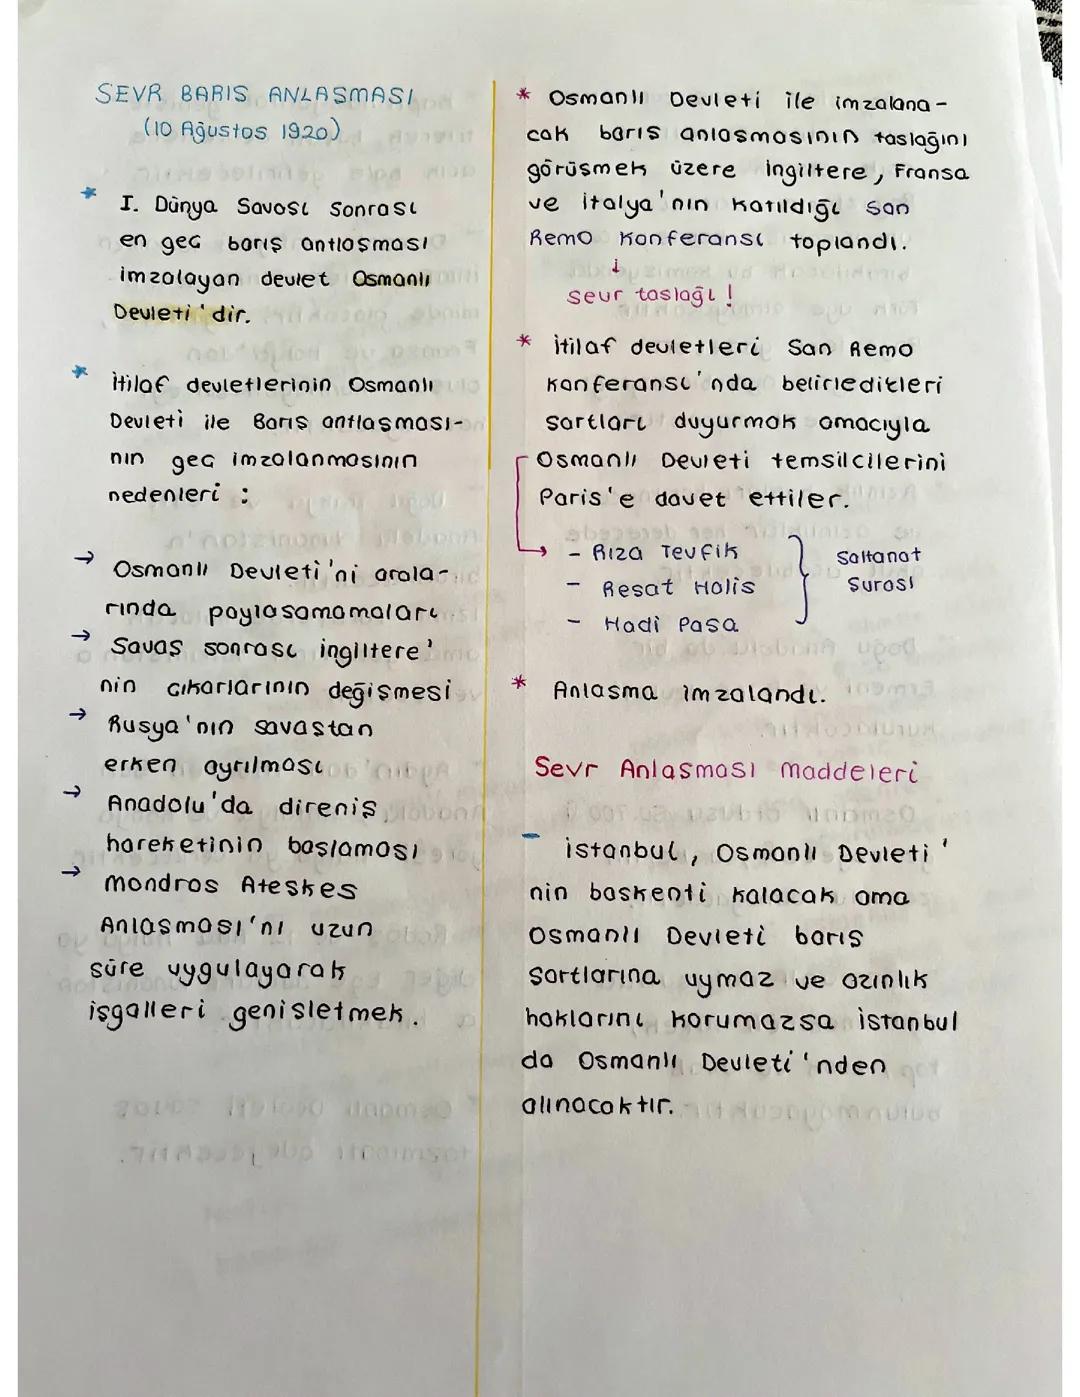 SEVR BARIS ANLASMASI
(10 Ağustos 1920)
* I. Dünya Savası Sonrası
en geç barış antlaşması
imzalayan devlet Osmanlı
Devleti'dir.
* İtilaf devletlerinin Osmanlı
Devleti ile Barış antlaşması-
nın geç imzalanmasının
nedenleri :
→ Osmanlı Devleti'ni arala-
rında paylasamamaları
→ Savaş sonrası ingiltere'
nin çıkarlarının değişmesi
→ Rusya'nın savastan
erken ayrılması
→ Anadolu'da direniş
hareketinin başlaması
→ Mondros Ateşkes
Anlaşması'nı uzun
süre uygulayarak
işgalleri genişletmek.
* Osmanlı Devleti ile imzalana-
cak barış anlaşmasının taslağını
görüşmek üzere ingiltere, Fransa
ve italya'nın katıldığı San
Remo Konferansı toplandı.
↓
Sevr taslağı !
* itilaf devletleri San Remo
Konferansı'nda belirledikleri
sartları duyurmak amacıyla
Osmanlı Devleti temsilcilerini
Paris'e davet ettiler.
→ - Rıza Tevfik
- Resat Halis
- Hadi Pasa
Saltanat
Surası
* Anlasma imzalandı.
Sevr Anlaşması maddeleri
- istanbul, Osmanlı Devleti'
nin baskenti kalacak ama
Osmanlı Devleti barış
Sartlarına uymaz ve azınlık
haklarını korumazsa istanbul
da Osmanlı Devleti'nden
alınacaktır.